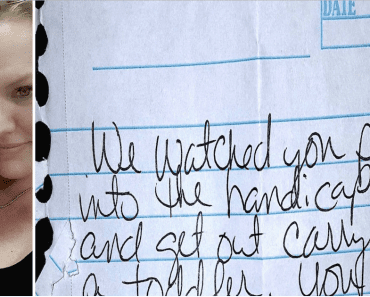 DATE
We watched you
into the handicap
and get out carry
a toddler. You